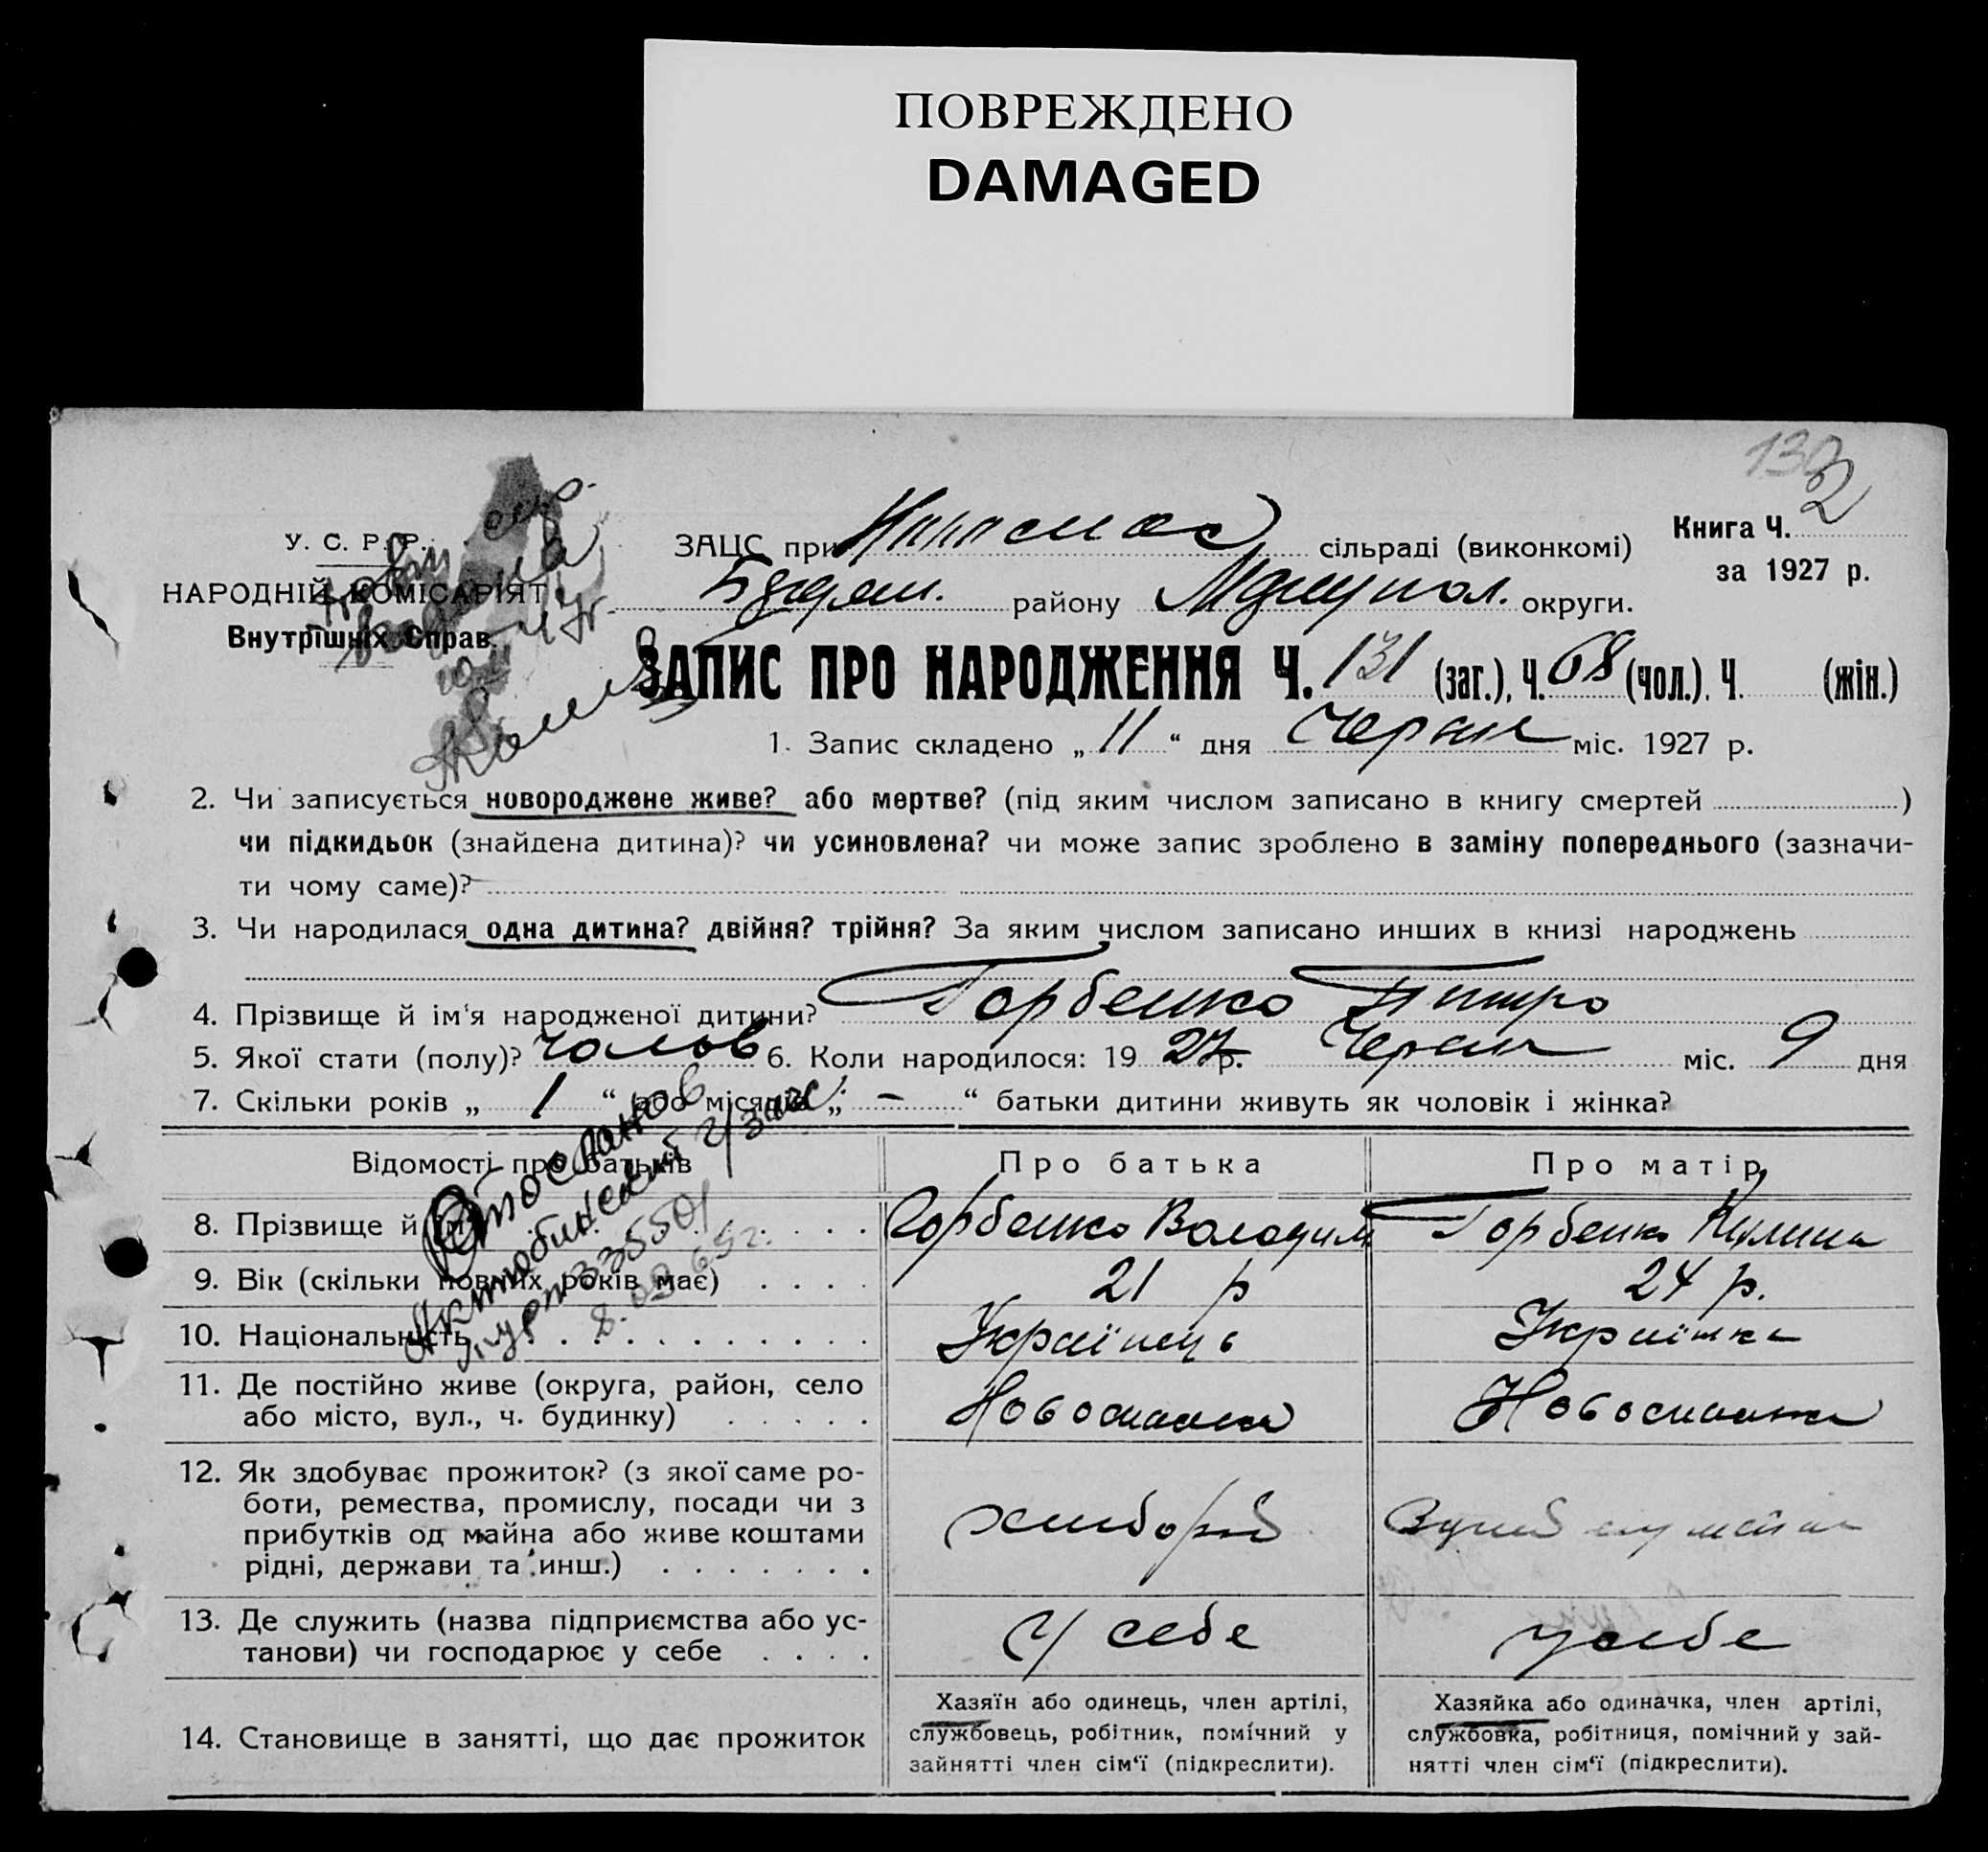 ПОВРЕЖДЕНО
DAMAGED
130
2
У. С. Р. Р.
НАРОДНІЙ КОМІСАРІЯТ
Внутрішніх Справ.
ЗАЦС при сільраді (виконкомі)
Книга Ч.
за 1927 р.
району Маріупол. округи.
ЗАПИС ПРО НАРОДЖЕННЯ Ч. 131 (заг.), Ч. 68 (чол.). Ч. (жін.)
1. Запис складено „ 11 “ дня Червня міс. 1927 р.
2. Чи записується новороджене живе? або мертве? (під яким числом записано в книгу смертей )
чи підкидьок (знайдена дитина)? чи усиновлена? чи може запис зроблено в заміну попереднього (зазначи-
ти чому саме)?
3. Чи народилася одна дитина? двійня? трійня? За яким числом записано инших в книзі народжень
4. Прізвище й ім‘я народженої дитини? Горбенко Питро
5. Якої стати (полу)? чолов 6. Коли народилося: 19 27 р. Червня міс. 9 дня
7. Скільки років „ 1 “ або місяців „ - “ батьки дитини живуть як чоловік і жінка?
Отослано в
Актюбинский г/загс
33550
8. 09 65г.
Відомості про батьків Про батька Про матір
8. Прізвище й ім‘я Горбенко Володим Горбенко Килина
9. Вік (скільки повних років має) 21 р 24 р.
10. Національність Українець Українка
11. Де постійно живе (округа, район, село
або місто, вул., ч. будинку) Новоспаска Новоспаска
12. Як здобуває прожиток? (з якої саме ро-
боти, ремества, промислу, посади чи з
прибутків од майна або живе коштами
рідні, держави та инш.) хлибороб
13. Де служить (назва підприємства або ус-
танови) чи господарює у себе У себе у себе
14. Становище в занятті, що дає прожиток
Хазяїн або одинець, член артілі,
службовець, робітник, помічний у
зайнятті член сім‘ї (підкреслити).
Хазяйка або одиначка, член артілі,
службовка, робітниця, помічний у зай-
нятті член сім‘ї (підкреслити).